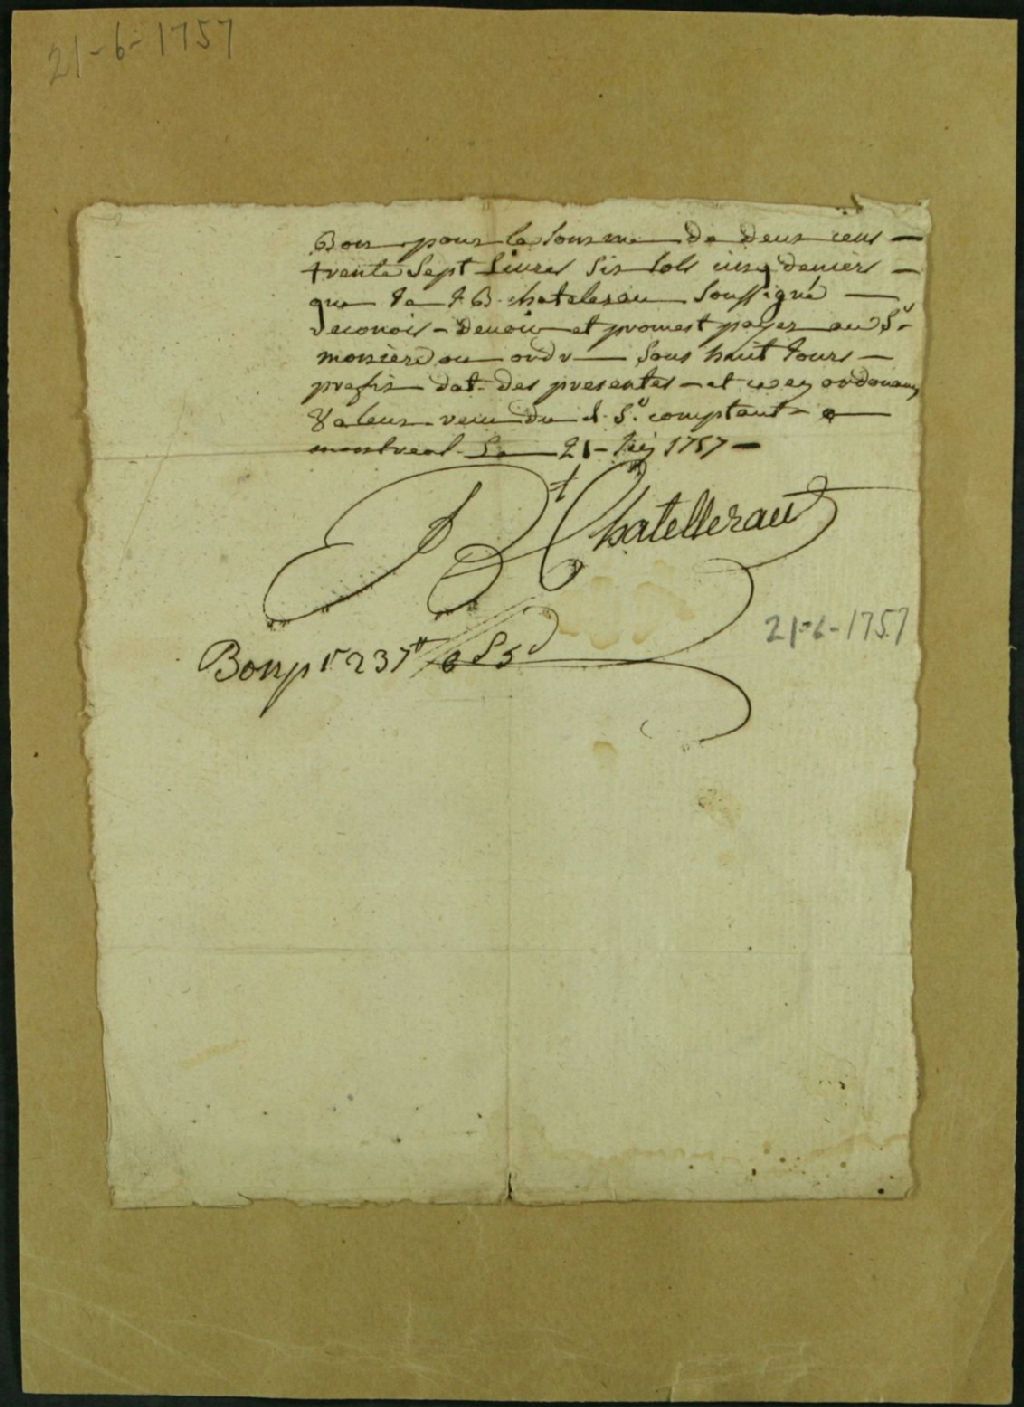 21-6-1757
Bon pour la somme de deux cens
trente sept livres six sols cinq deniers
que Je J B. chatelereau soussigné
reconois devoir et promest payer au Sr
moniere ou ordre sous huit Jours
prefix dat. des presentes et
Valeur recu du d. Sr. comptant a
montreal Le 21 1757
JBt Chatellerau
Bon pr 237# 6 S 5 d
21-6-1757